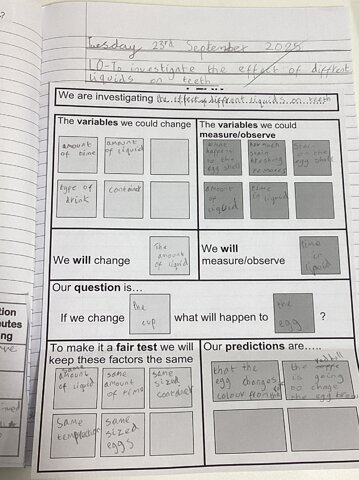 Tuesday 23rd September 2025
LO-To investigate the effect of diffrent
liquids on teeth
We are investigating the effect of different liquids on teeth
The variables we could change
The variables we could
measure/observe
amount
of time
amount
of liquid
what
happens
to
the egg shell
how much
stain
brushing
removes
Stain
on the
egg shell
type of
drink
container
amount
of
liquid
time
in
liquid
We will change
The
amount
of liquid
We will
measure/observe
time
in
liquid
Our question is…
If we change
the
cup
what will happen to
the
egg
?
To make it a fair test we will
keep these factors the same
Our predictions are…..
same
amount
of liquid
same
amount
of time
same
sized
container
that the
egg changes
colour from
red bull
is going
to change
the egg
Same
same
sized
eggs